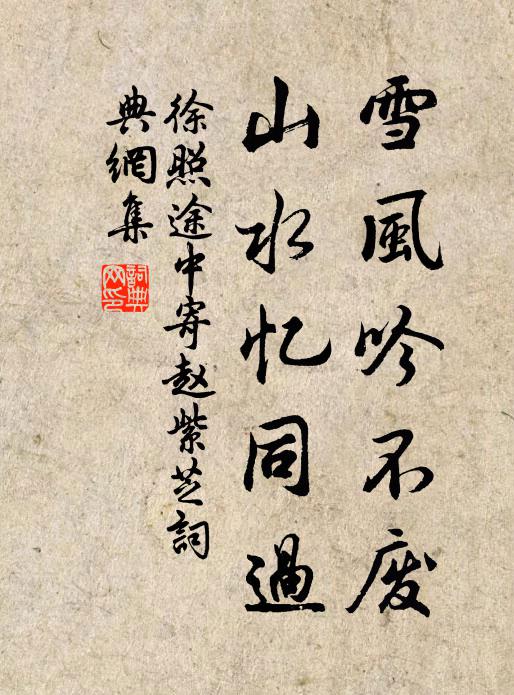 雪風吟不废
山水忆同過
徐照途中寄赵紫芝詞
典網集
詞典网印